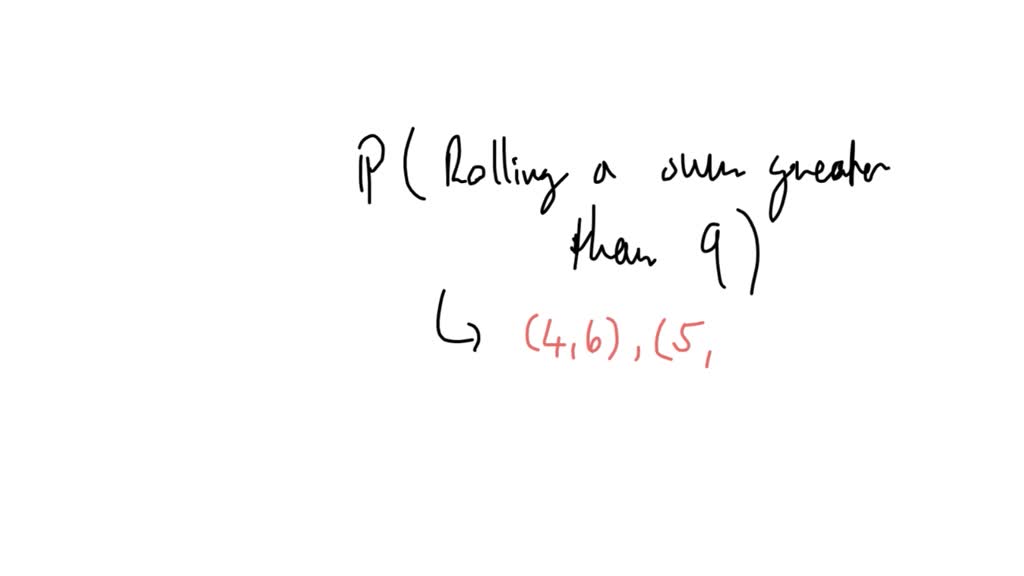 ℙ(Rolling a sum greater
than 9)
↳ (4,6), (5,